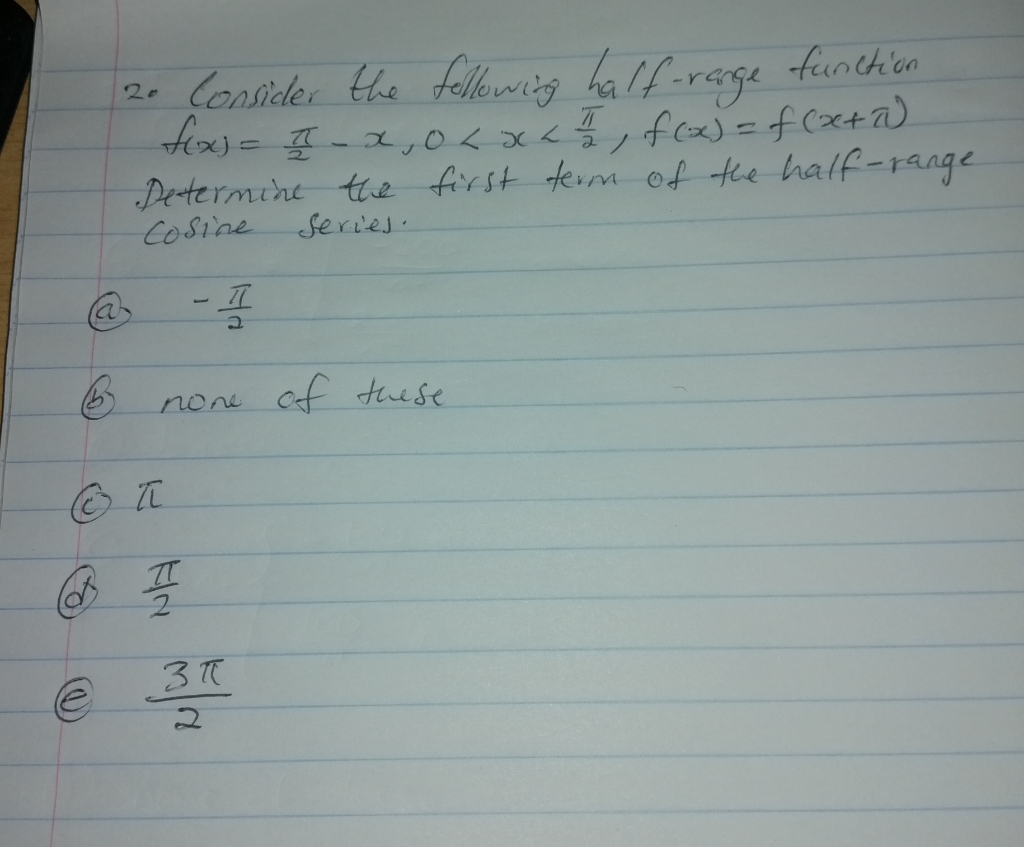 2. Consider the following half-range function
f(x) = π/2 - x, 0 < x < π/2, f(x) = f(x+π)
Determine the first term of the half-range
cosine series.
(a) - π/2
(b) none of these
(c) π
(d) π/2
(e) 3π/2